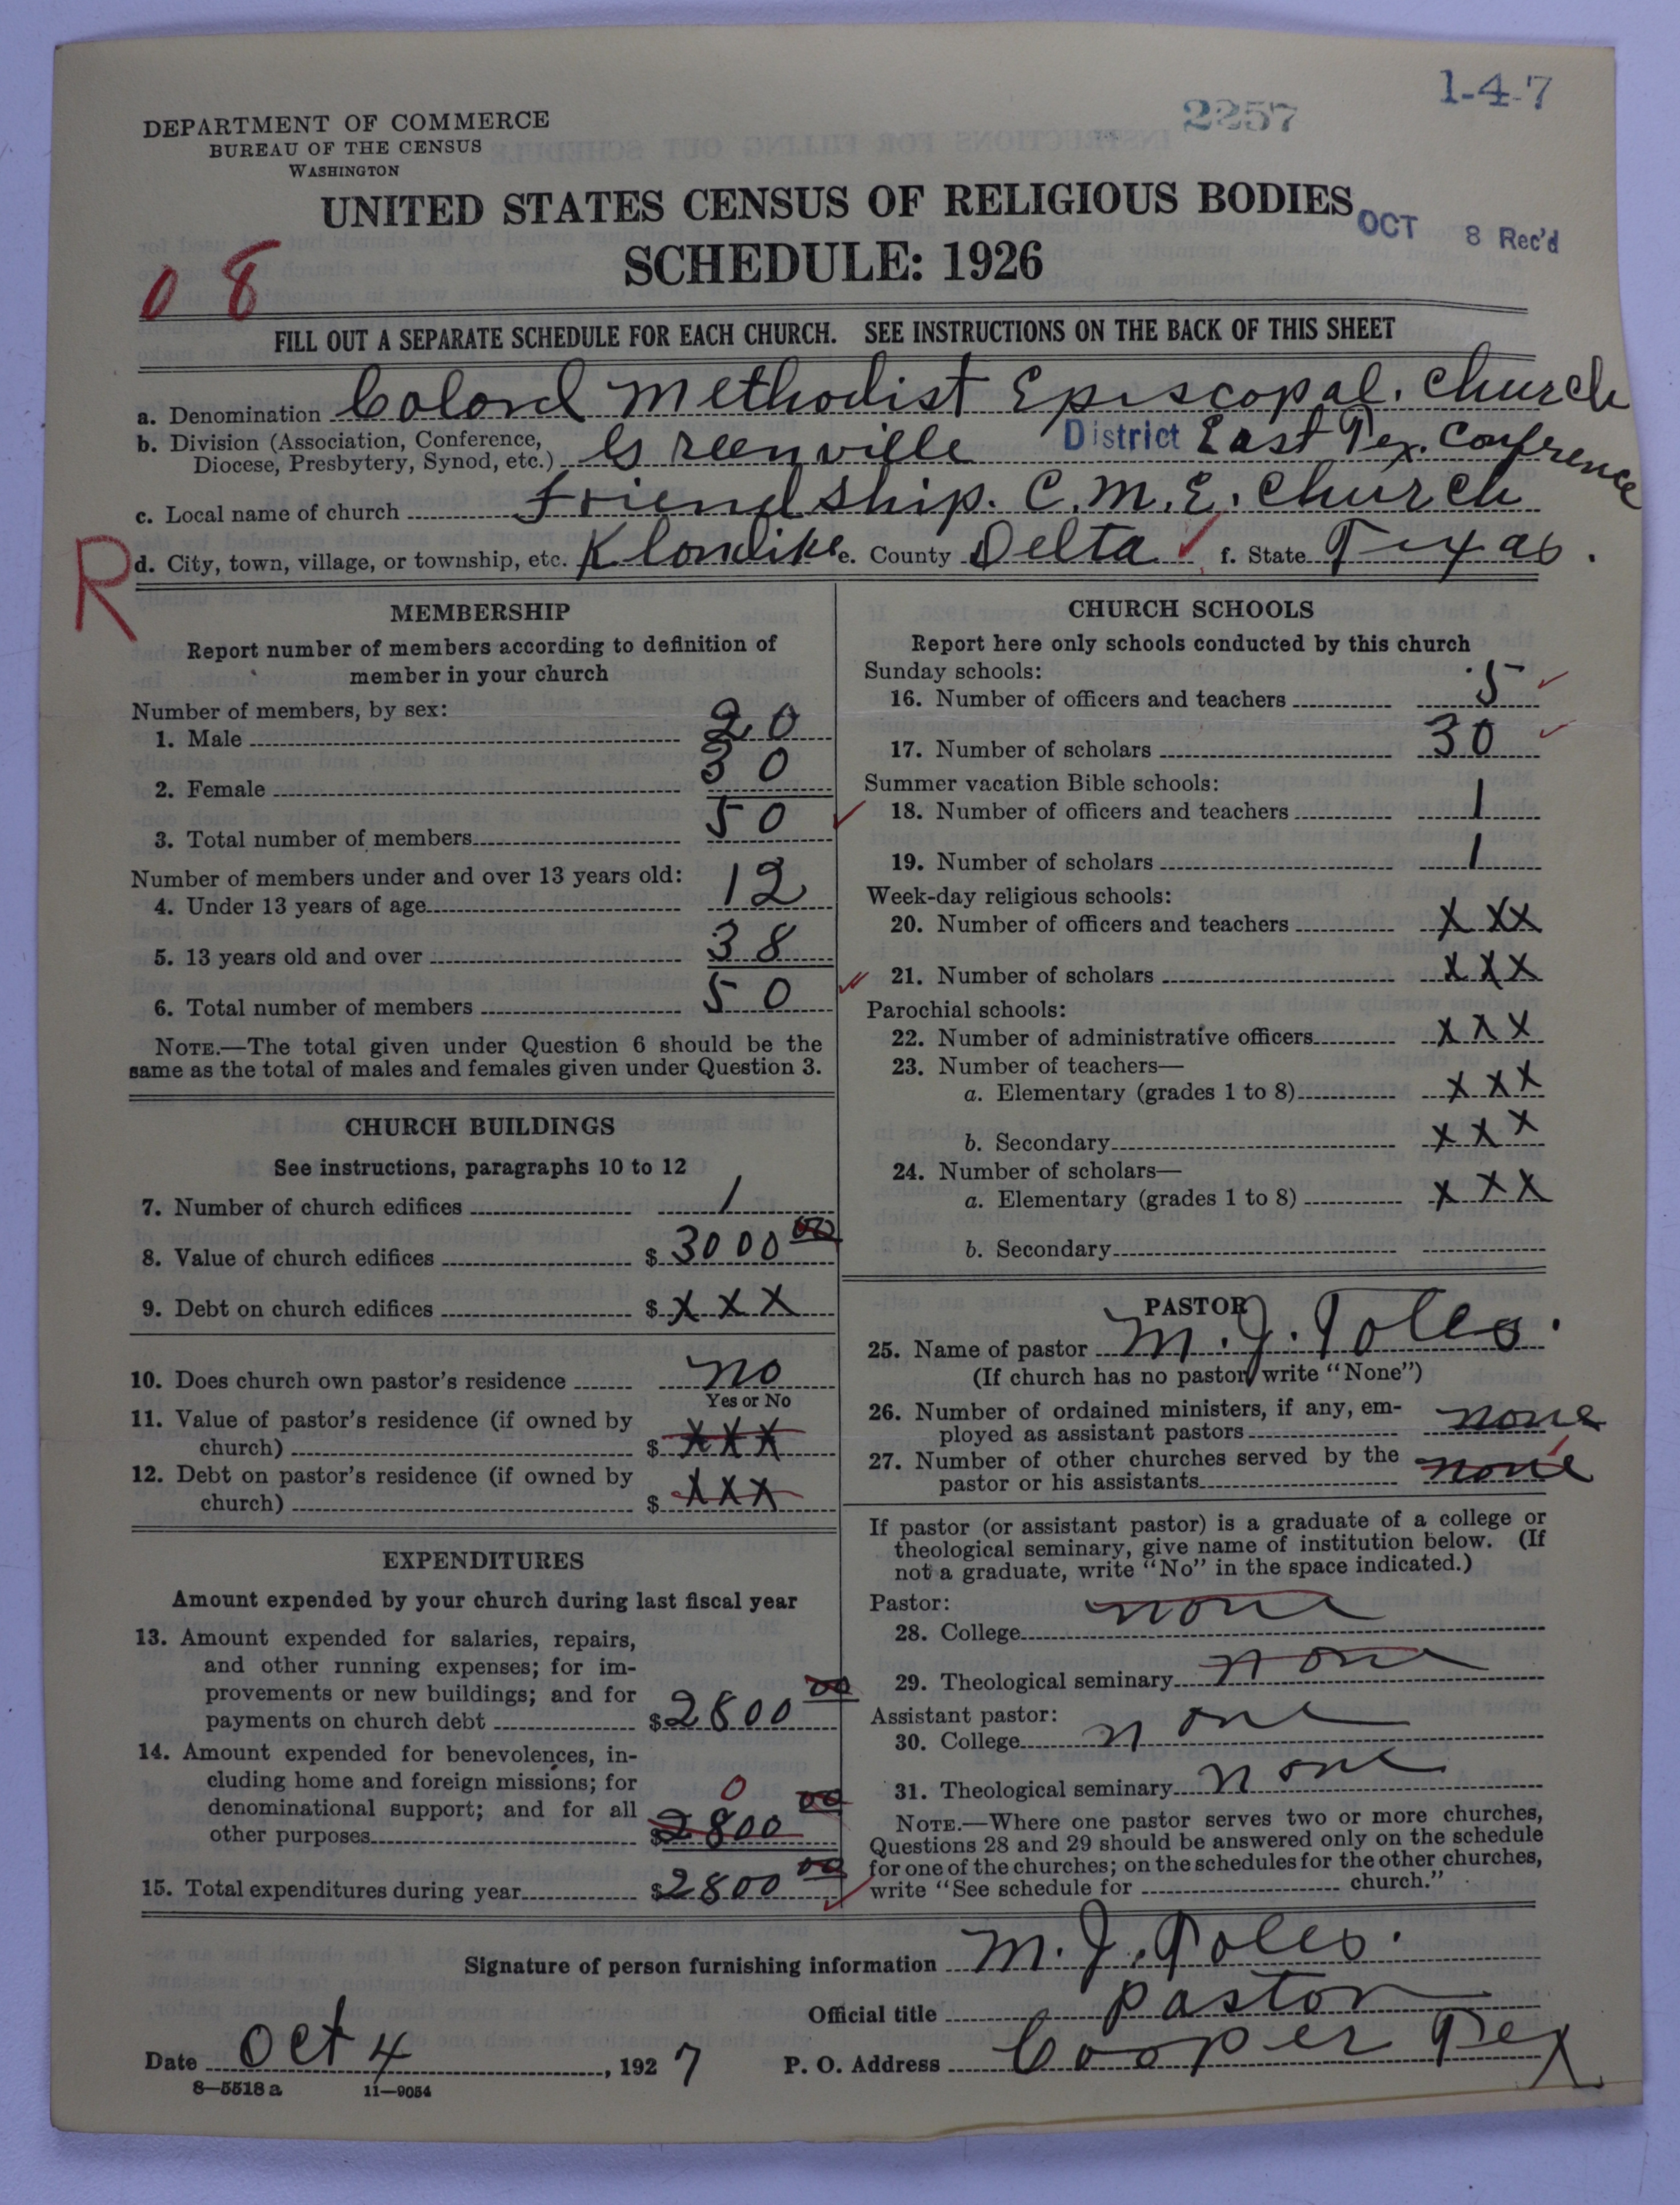 1-4-7
2257
DEPARTMENT OF COMMERCE
BUREAU OF THE CENSUS
WASHINGTON
UNITED STATES CENSUS OF RELIGIOUS BODIES
OCT 8 Rec'd
SCHEDULE: 1926
08
FILL OUT A SEPARATE SCHEDULE FOR EACH CHURCH. SEE INSTRUCTIONS ON THE BACK OF THIS SHEET
a. Denomination Colord Methodist Episcopal. Church
b. Division (Association, Conference, Diocese, Presbytery, Synod, etc.) Greenville District East Tex. Confrence
c. Local name of church Friendship. C.M.E. Church
R
d. City, town, village, or township, etc. Klondike e. County Delta f. State Texas.
MEMBERSHIP
Report number of members according to definition of
member in your church
Number of members, by sex:
1. Male 20
2. Female 30
3. Total number of members 50
Number of members under and over 13 years old:
4. Under 13 years of age 12
5. 13 years old and over 38
6. Total number of members 50
NOTE.—The total given under Question 6 should be the
same as the total of males and females given under Question 3.
CHURCH BUILDINGS
See instructions, paragraphs 10 to 12
7. Number of church edifices 1
8. Value of church edifices $3000 00
9. Debt on church edifices $XXX
10. Does church own pastor's residence no
Yes or No
11. Value of pastor's residence (if owned by
church) $XXX
12. Debt on pastor's residence (if owned by
church) $XXX
EXPENDITURES
Amount expended by your church during last fiscal year
13. Amount expended for salaries, repairs,
and other running expenses; for im-
provements or new buildings; and for
payments on church debt $2800 00
14. Amount expended for benevolences, in-
cluding home and foreign missions; for
0
denominational support; and for all
other purposes $2800 00
15. Total expenditures during year $2800 00
CHURCH SCHOOLS
Report here only schools conducted by this church
Sunday schools:
16. Number of officers and teachers 5
17. Number of scholars 30
Summer vacation Bible schools:
18. Number of officers and teachers 1
19. Number of scholars 1
Week-day religious schools:
20. Number of officers and teachers XXX
21. Number of scholars XXX
Parochial schools:
22. Number of administrative officers XXX
23. Number of teachers—
a. Elementary (grades 1 to 8) XXX
b. Secondary XXX
24. Number of scholars—
a. Elementary (grades 1 to 8) XXX
b. Secondary
PASTOR
25. Name of pastor M. J. Toles.
(If church has no pastor, write "None")
26. Number of ordained ministers, if any, em-
ployed as assistant pastors none
27. Number of other churches served by the
pastor or his assistants none
If pastor (or assistant pastor) is a graduate of a college or
theological seminary, give name of institution below. (If
not a graduate, write "No" in the space indicated.)
Pastor:
28. College none
29. Theological seminary none
Assistant pastor:
30. College none
31. Theological seminary none
NOTE.—Where one pastor serves two or more churches,
Questions 28 and 29 should be answered only on the schedule
for one of the churches; on the schedules for the other churches,
write "See schedule for church."
Signature of person furnishing information M. J. Toles.
Official title pastor
Date Oct 4, 1927 P. O. Address Cooper Tex
8—5518 a 11—9054